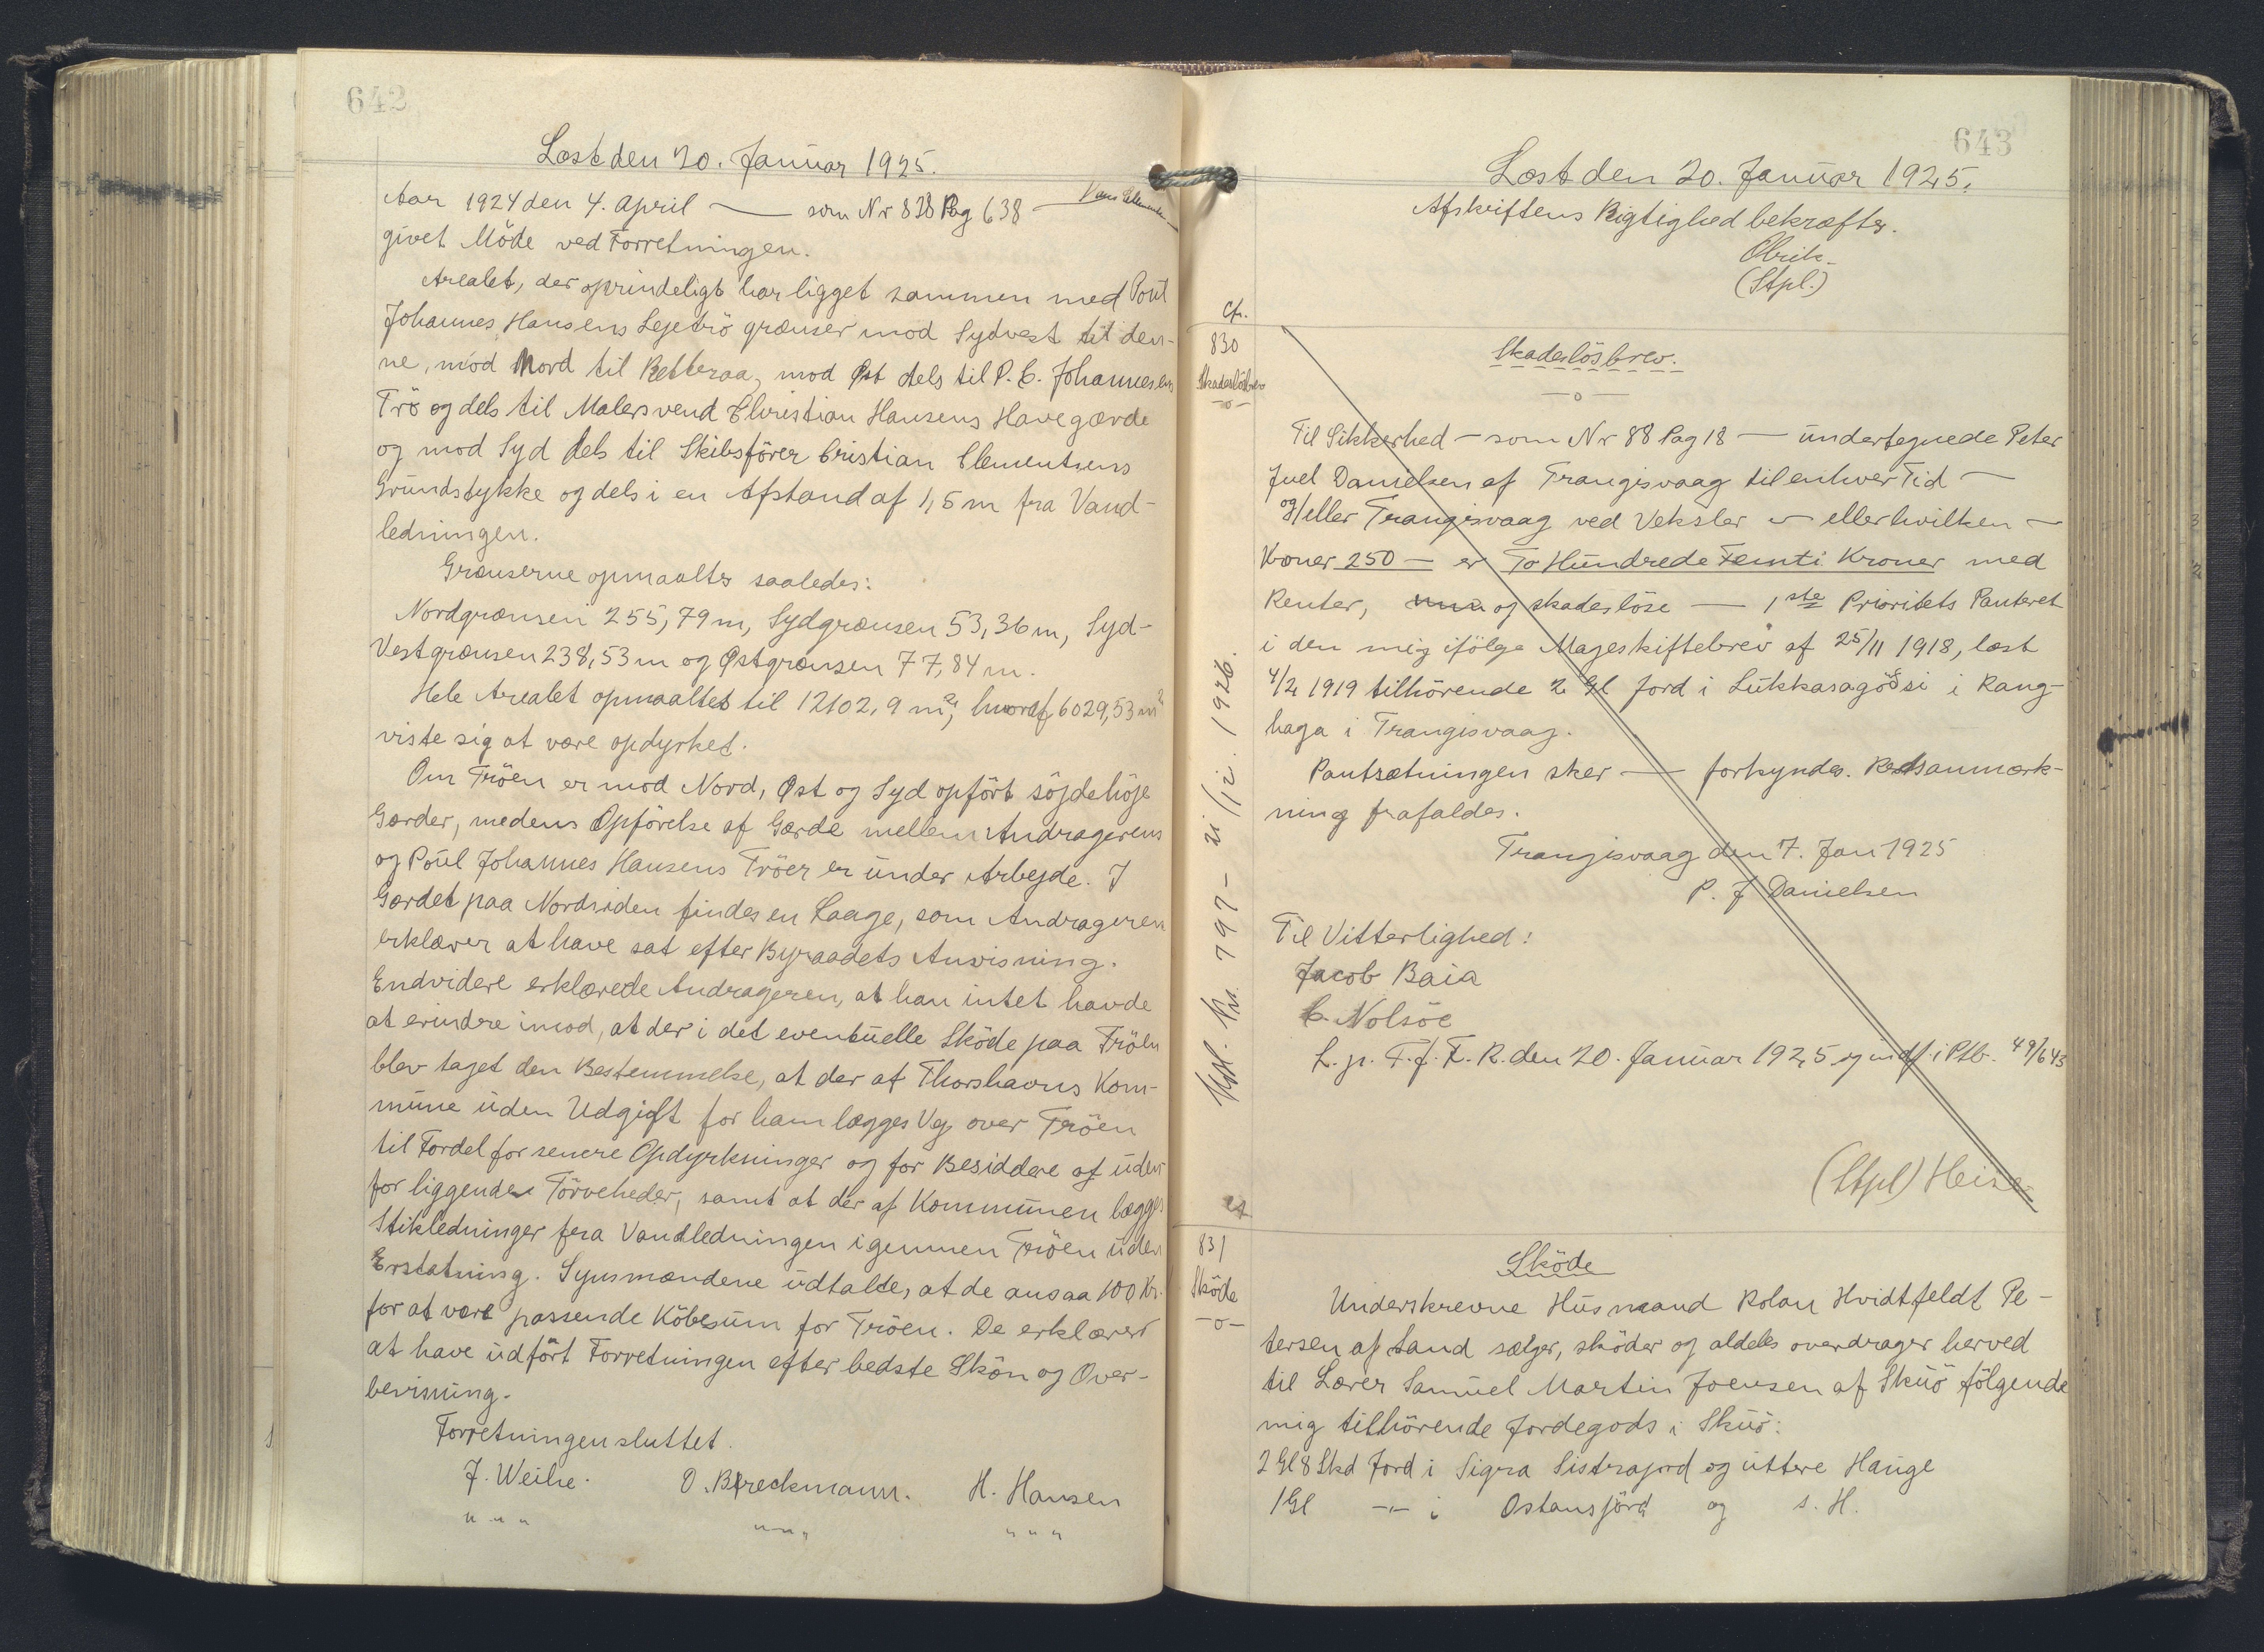 642
Læst den 20. Januar 1925.
Aar 1924 den 4. April — som Nr 838 Pag 638 —
givet Møde ved Forretningen.
Arealet, der oprindeligt har ligget sammen med Poul
Johannes Hansens Lejetrö grænser mod Sydvest til den-
ne, mod Nord til Retteraa, mod Øst dels til P. C. Johannesens
Trö og dels til Malersvend Christian Hansens Havegærde
og mod Syd dels til Skibsförer Cristian Clementsens
Grundstykke og dels i en Afstand af 1,5 m fra Vand-
ledningen.
Grænserne opmaaltes saaledes:
Nordgrænsen 255,79 m, Sydgrænsen 53,36 m, Syd-
Vestgrænsen 238,53 m og Østgrænsen 77,84 m.
Hele Arealet opmaaltes til 12102,9 m², hvoraf 6029,53 m²
viste sig at være opdyrket.
Om Tröen er mod Nord, Øst og Syd opfört söjdehöje
Gærder, medens Opförelse af Gærde mellem Andragerens
og Poul Johannes Hansens Tröer er under Arbejde. I
Gærdet paa Nordsiden findes en Laage, som Andrageren
erklærer at have sat efter Byraadets Anvisning.
Endvidere erklærede Andrageren, at han intet havde
at erindre imod, at der i det eventuelle Sköde paa Tröen
blev taget den Bestemmelse, at der af Thorshavns Kom-
mune uden Udgift for ham lægges Vej over Tröen
til Fordel for senere Opdyrkninger og for Besiddere af uden
for liggende Törveheder, samt at der af Kommunen lægges
Stikledninger fra Vandledningen igennem Tröen uden
Erstatning. Synsmændene udtalte, at de ansaa 100 Kr.
for at være passende Köbesum for Tröen. De erklærer
at have udfört Forretningen efter bedste Skön og Over-
bevisning.
Forretningen sluttet.
J. Weihe. O. Breckmann. H. Hansen
" " " " " " " " "
643
Læst den 20. Januar 1925.
Afskriftens Rigtighed bekræftes.
Olrik.
(Stpl.)
Cfr.
830
Skadeslösbrev
—o—
Skadeslösbrev.
—o—
Til Sikkerhed — som Nr 88 Pag 18 — undertegnede Peter
Juel Danielsen af Trangisvaag til enhver Tid —
og/eller Trangisvaag ved Veksler — eller hvilken —
Kroner 250 — er To Hundrede Femti Kroner med
Renter, og skadeslöse — 1ste Prioritets Panteret
i den mig ifölge Mageskiftebrev af 25/11 1918, læst
4/2 1919 tilhörende 2 Gl Jord i Lukkasagössi i Rang-
haga i Trangisvaag.
Pantsætningen sker — forkyndes. Retsanmærk-
ning frafaldes.
Trangisvaag den 7. Jan 1925
P. J Danielsen
Til Vitterlighed:
Jacob Baia
C. Nolsöe
L. p. T. f. F. R. den 20. Januar 1925 og indf. i Ptb. 49/643
(Stpl) Heise
Nr. 797 - 21/12. 1926.
831
Sköde
—o—
Sköde
Underskrevne Husmand Rolan Hvidtfeldt Pe-
tersen af Sand sælger, sköder og aldeles overdrager herved
til Lærer Samuel Martin Joensen af Skuö fölgende
mig tilhörende Jordegods i Skuö:
2 Gl 8 Skd Jord i Sigra Sistrajord og uttere Hauge
1 Gl —"— i Ostansjörd og s. H.